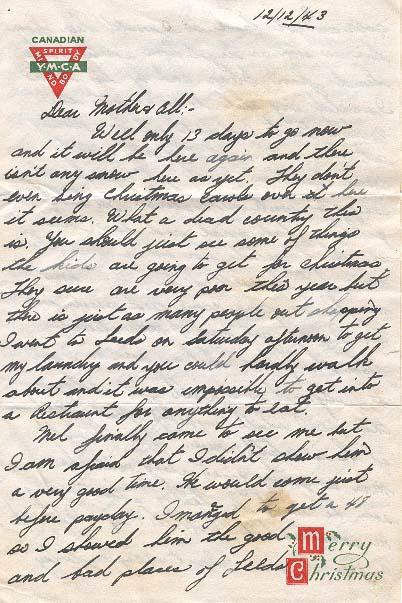 12/12/43
CANADIAN
SPIRIT
MIND BODY
Y·M·C·A
Dear Mother & All:-
Well only 13 days to go now
and it will be here again and there
isn't any snow here as yet. They don't
even sing Christmas carols over it here
it seems. What a dead country this
is. You should just see some of things
the kids are going to get for Christmas
They sure are very poor this year but
there is just as many people out shopping
I went to Leeds on Saturday afternoon to get
my laundry and you could hardly walk
about and it was impossible to get into
a Restaurant for anything to eat.
Mel finally came to see me but
I am afraid that I didn't show him
a very good time. He would come just
before payday. I manged to get a 48
so I showed him the good
and bad places of Leeds
Merry
Christmas